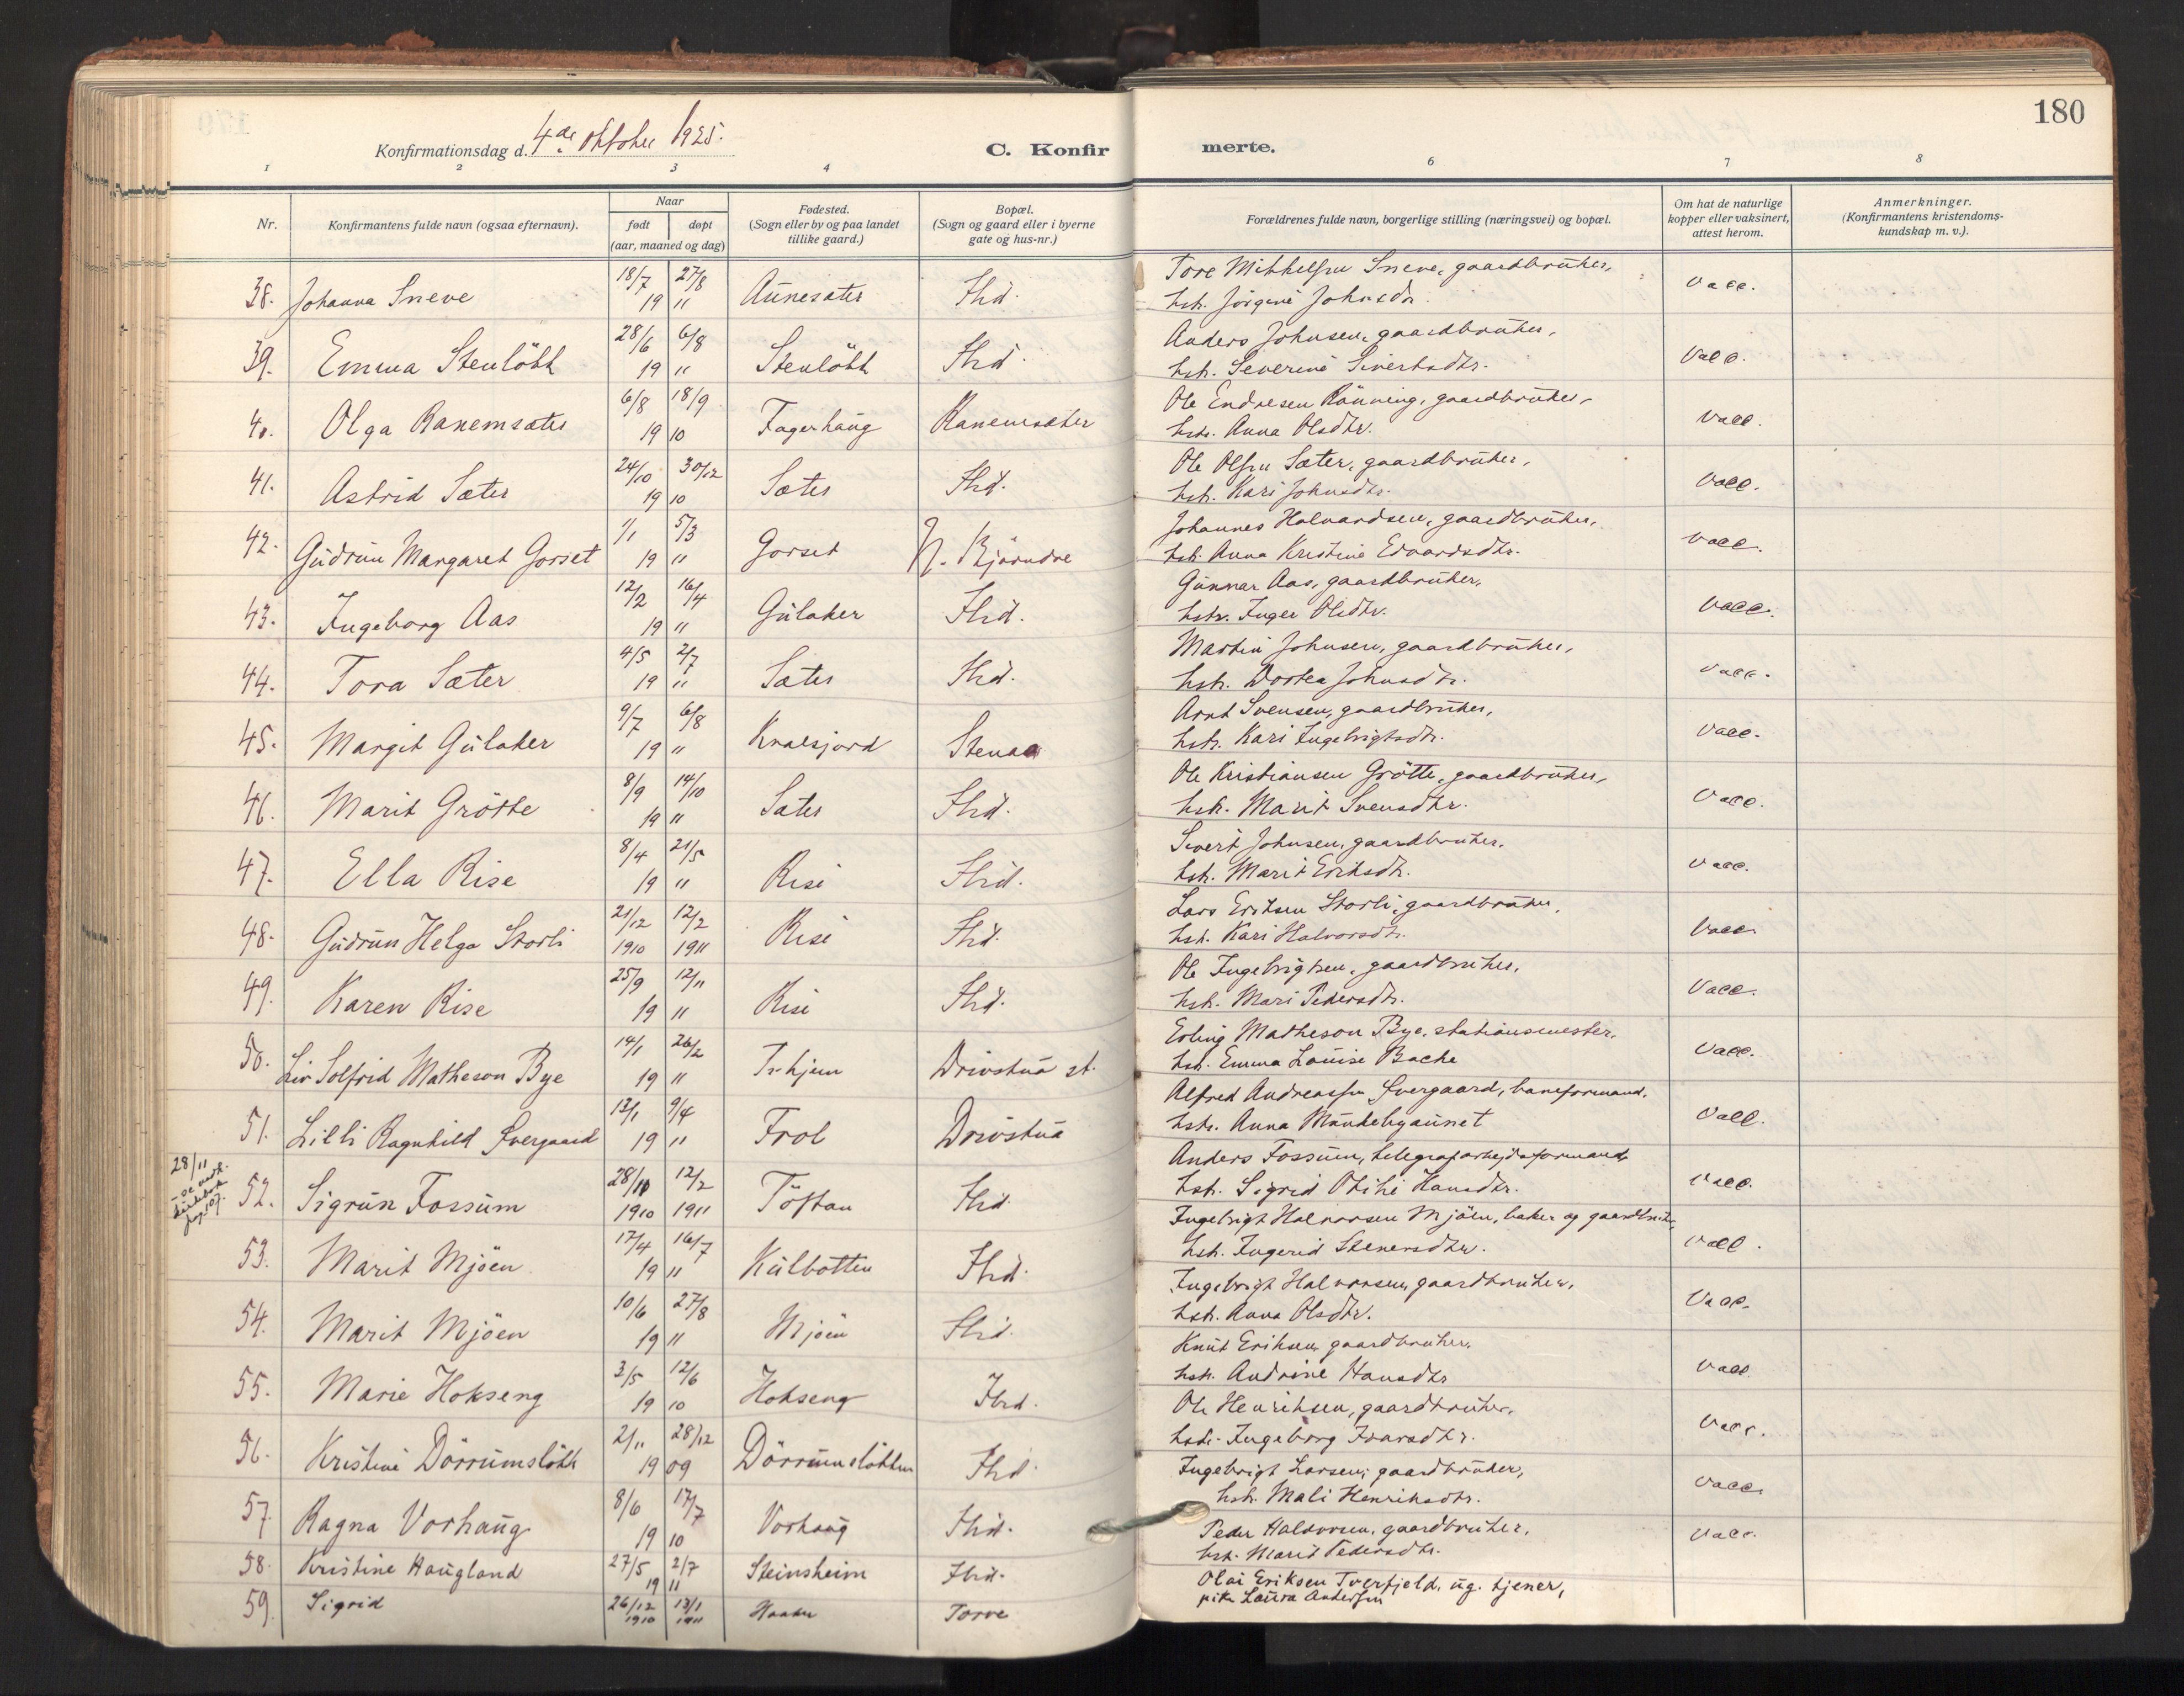 Konfirmationsdag d. 4de oktober 1925.
C. Konfirmerte.
180
1 2 3 4 6 7 8
Nr.
Konfirmantens fulde navn (ogsaa efternavn).
Naar
født døpt
(aar, maaned og dag)
Fødested.
(Sogn eller by og paa landet
tillike gaard.)
Bopæl.
(Sogn og gaard eller i byerne
gate og hus-nr.)
Forældrenes fulde navn, borgerlige stilling (næringsvei) og bopæl.
Om hat de naturlige
kopper eller vaksinert,
attest herom.
Anmerkninger.
(Konfirmantens kristendoms-
kundskap m. v.).
38. Johanna Sneve 18/7 19 11 27/8 Aunesæter Ibid. Tore Mikkelsen Sneve, gaardbruker,
hstr. Jörgine Johnsdr. vacc.
39. Emma Stenlökk 28/6 19 11 6/8 Stenlökk Ibid. Anders Johnsen, gaardbruker,
hstr. Severine Sivertsdtr. Vacc.
40. Olga Ranemsæter 6/8 19 10 18/9 Fagerhaug Ranemsæter Ole Endresen Rönning, gaardbruker,
hstr. Anna Olsdtr. Vacc.
41. Astrid Sæter 24/10 19 10 30/12 Sæter Ibid. Ole Olsen Sæter, gaardbruker,
hstr. Kari Johnsdtr. Vacc.
42. Gudrun Margaret Gorset 1/1 19 11 5/3 Gorset N. Bjørndre Johannes Halvardsen, gaardbruker,
hstr. Anna Kristine Edvardsdtr. Vacc.
43. Ingeborg Aas 12/2 19 11 16/4 Gulaker Ibid. Gunnar Aas, gaardbruker,
hstr. Inger Olsdtr. Vacc.
44. Tora Sæter 4/5 19 11 2/7 Sæter Ibid. Martin Johnsen, gaardbruker,
hstr. Dortea Johnsdtr. Vacc.
45. Margit Gulaker 9/7 19 11 6/8 Knaesjord Stenaa Arnt Svensen, gaardbruker,
hstr. Kari Ingebrigtsdtr. Vacc.
46. Marit Grötte 8/9 19 11 14/10 Sæter Ibid. Ole Kristiansen Grötte, gaardbruker,
hstr. Marit Svensdtr. Vacc.
47. Ella Rise 8/4 19 11 21/5 Rise Ibid. Sivert Johnsen, gaardbruker,
hstr. Marit Eriksdtr. Vacc.
48. Gudrun Helga Storli 21/12 1910 12/2 1911 Rise Ibid. Lars Eriksen Storli, gaardbruker,
hstr. Kari Halvorsdtr. Vacc.
49. Karen Rise 25/9 19 11 12/11 Rise Ibid. Ole Ingebrigtsen, gaardbruker,
hstr. Mari Pedersdtr. Vacc.
50. Liv Solfrid Matheson Bye 14/1 19 11 26/2 Tr.hjem Drivstua st. Erling Matheson Bye, stationsmester,
hstr. Emma Louise Bache Vacc.
51. Lilli Ragnhild Svergaard 13/1 19 11 9/4 Frol Drivstua Alfred Andreassen Svergaard, baneformand,
hstr. Anna Munkebygaunet Vacc.
28/11
52. Sigrun Fossum 28/10 1910 12/2 1911 Töftan Ibid. Anders Fossum, telegrafarbejdsformand,
hstr. Sigrid Otihi Hansdtr. Vacc.
53. Marit Mjöen 17/4 19 11 16/7 Kulbotten Ibid. Ingebrigt Halvorsen Mjöen, baker og gaardbruker,
hstr. Ingerid Stenersdtr. Vacc.
54. Marit Mjöen 10/6 19 11 27/8 Mjöen Ibid. Ingebrigt Halvorsen, gaardbruker,
hstr. Anna Olsdtr. Vacc.
55. Marie Hokseng 3/5 19 10 12/6 Hokseng Ibid. Knut Eriksen, gaardbruker,
hstr. Andrine Hansdtr Vacc.
56. Kristine Dörrumslökk 2/11 19 09 28/12 Dörrumslökken Ibid. Ole Henriksen, gaardbruker,
hstr. Ingeborg Ivarsdtr. Vacc.
57. Ragna Vorhaug 8/6 19 10 17/7 Vorhaug Ibid. Ingebrigt Larsen, gaardbruker,
hstr. Mali Henriksdtr. Vacc.
58. Kristine Haugland 27/5 19 11 2/7 Steinsheim Ibid. Peder Haldorsen, gaardbruker,
hstr. Marit Pedersdtr. Vacc.
59. Sigrid 26/12 1910 13/1 1911 Torve Olai Eriksen Tverfjeld, ug. tjener,
pike Laura Andersen